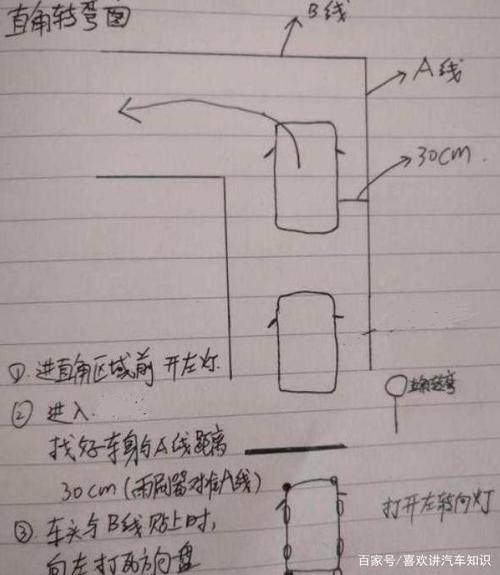 直角转弯图
B线
A线
30cm
①. 进直角区域前 开左灯.
② 进入.
找好车身与A线距离
30cm (雨刮器对准A线)
③ 车头与B线贴上时,
向左打死方向盘
直角转弯
打开左转向灯
百家号/喜欢讲汽车知识